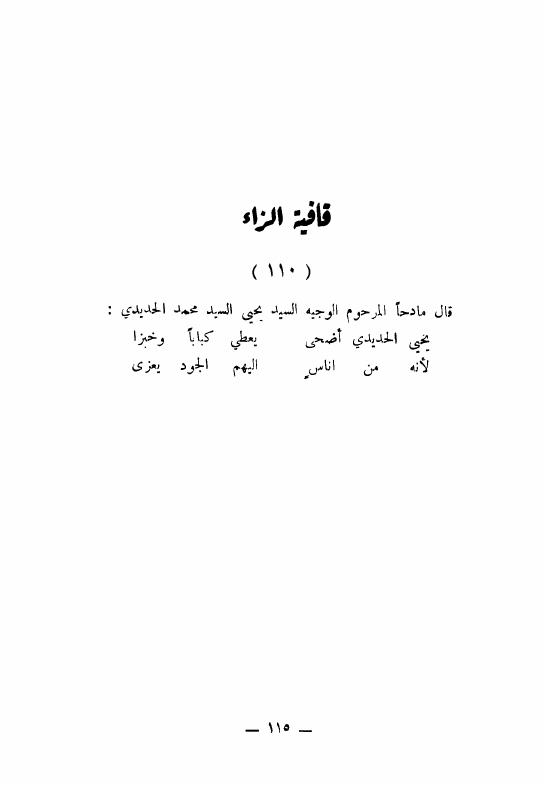 قافية الزاء
( ١١٠ )
قال مادحاً المرحوم الوجيه السيد يحيى السيد محمد الحديدي :
يحيى الحديدي أضحى يعطي كباباً وخبزا
لأنه من اناسٍ اليهم الجود يعزى
— ١١٥ —